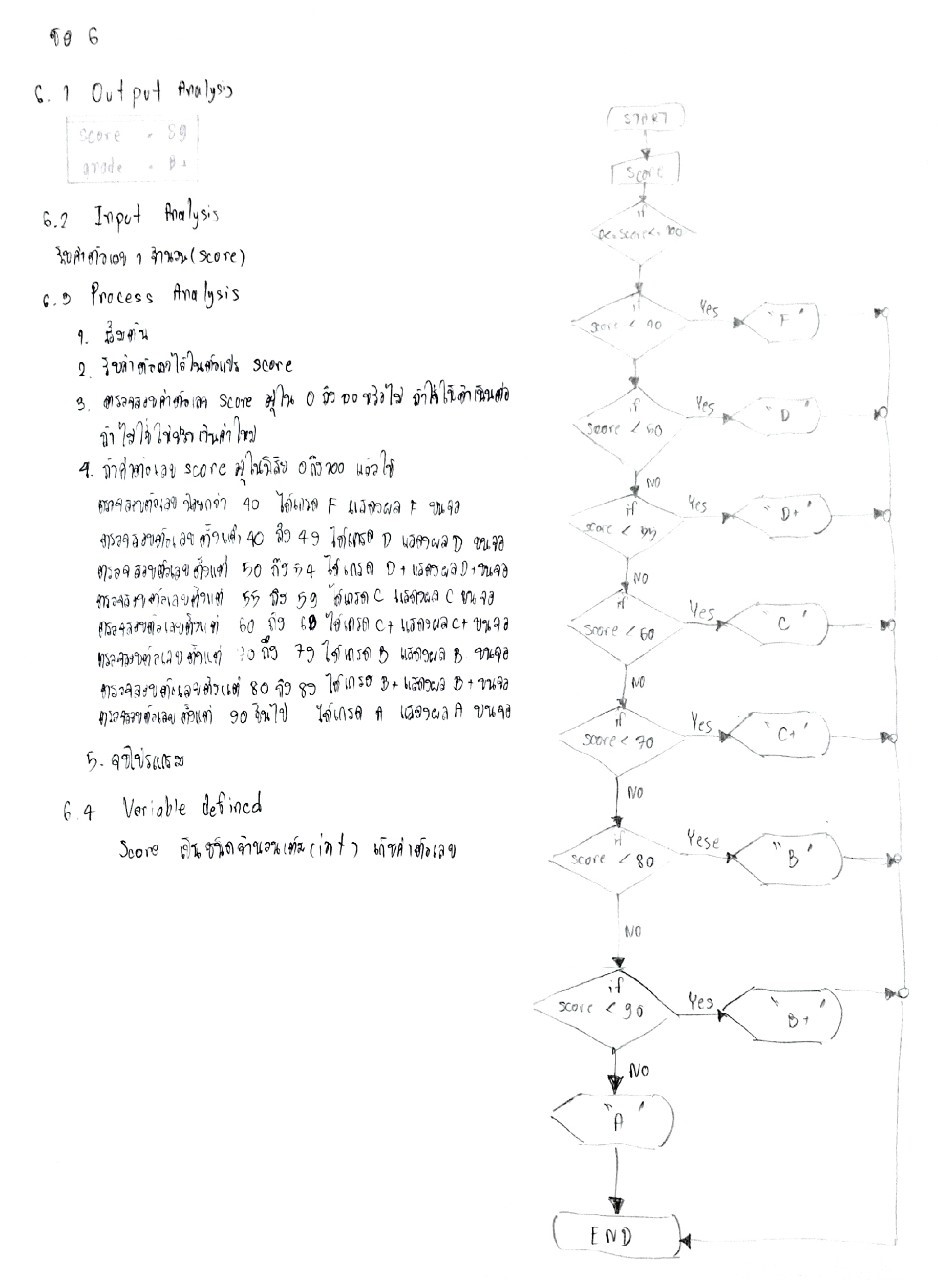 ข้อ 6
6.1 Output Analysis
score = 89
grade = B+
6.2 Input Analysis
รับค่าตัวเลข 1 จำนวน (score)
6.3 Process Analysis
1. เริ่มต้น
2. รับค่าตัวเลขไว้ในตัวแปร score
3. ตรวจสอบค่าตัวเลข score อยู่ใน 0 ถึง 100 หรือไม่ ถ้าใช่ให้ดำเนินต่อ
ถ้าไม่ใช่ให้ ค่าใหม่
4. ถ้าค่าตัวเลข score อยู่ในพิสัย 0 ถึง 100 แล้วให้
ตรวจสอบตัวเลข น้อยกว่า 40 ได้เกรด F แสดงผล F บนจอ
ตรวจสอบตัวเลข ตั้งแต่ 40 ถึง 49 ได้เกรด D แสดงผล D บนจอ
ตรวจสอบตัวเลขตั้งแต่ 50 ถึง 54 ได้เกรด D+ แสดงผล D+ บนจอ
ตรวจสอบตัวเลขตั้งแต่ 55 ถึง 59 ได้เกรด C แสดงผล C บนจอ
ตรวจสอบตัวเลขตั้งแต่ 60 ถึง 69 ได้เกรด C+ แสดงผล C+ บนจอ
ตรวจสอบตัวเลขตั้งแต่ 70 ถึง 79 ได้เกรด B แสดงผล B บนจอ
ตรวจสอบตัวเลขตั้งแต่ 80 ถึง 89 ได้เกรด B+ แสดงผล B+ บนจอ
ตรวจสอบตัวเลข ตั้งแต่ 90 ขึ้นไป ได้เกรด A แสดงผล A บนจอ
5. จบโปรแกรม
6.4 Variable defined
Score เป็นชนิดจำนวนเต็ม (int) เก็บค่าตัวเลข
START
Score
if
0<=Score<=100
if
score < 40
Yes
"F"
if
score < 50
Yes
"D"
NO
if
score <
Yes
"D+"
NO
if
score < 60
Yes
"C"
NO
if
score < 70
Yes
"C+"
NO
if
score < 80
Yese
"B"
NO
if
score < 90
Yes
"B+"
NO
"A"
END